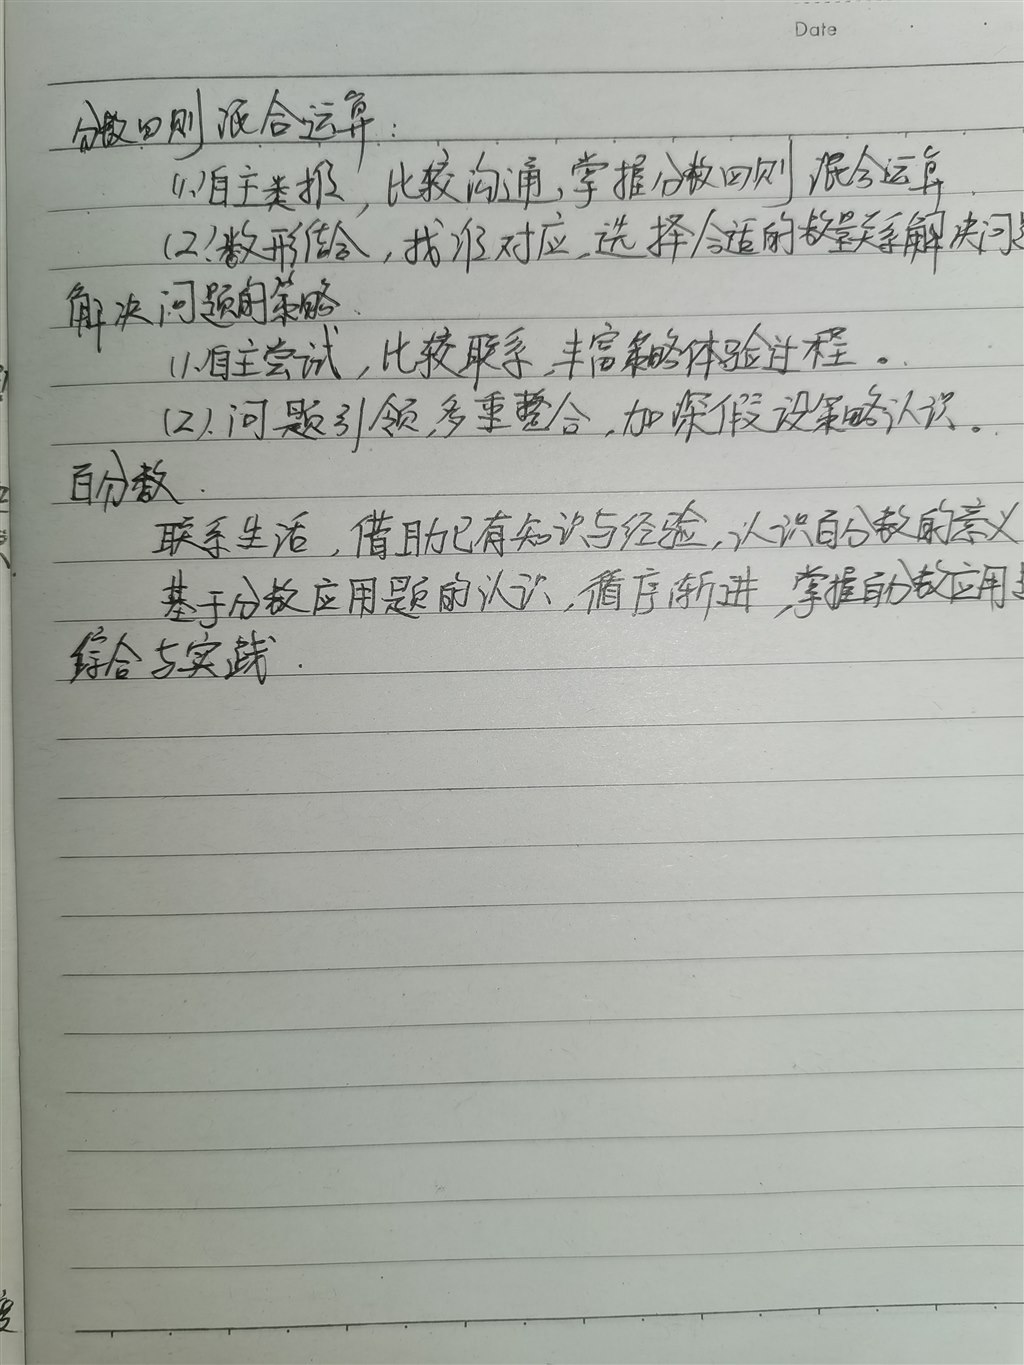 Date
分数四则混合运算:
(1).自主类推,比较沟通,掌握分数四则混合运算.
(2).数形结合,找准对应,选择合适的数量关系解决问题
解决问题的策略.
(1).自主尝试,比较联系,丰富策略体验过程。
(2).问题引领,多重整合,加深假设策略认识。
百分数.
联系生活,借助已有知识与经验,认识百分数的意义
基于分数应用题的认识,循序渐进,掌握百分数应用
综合与实践.